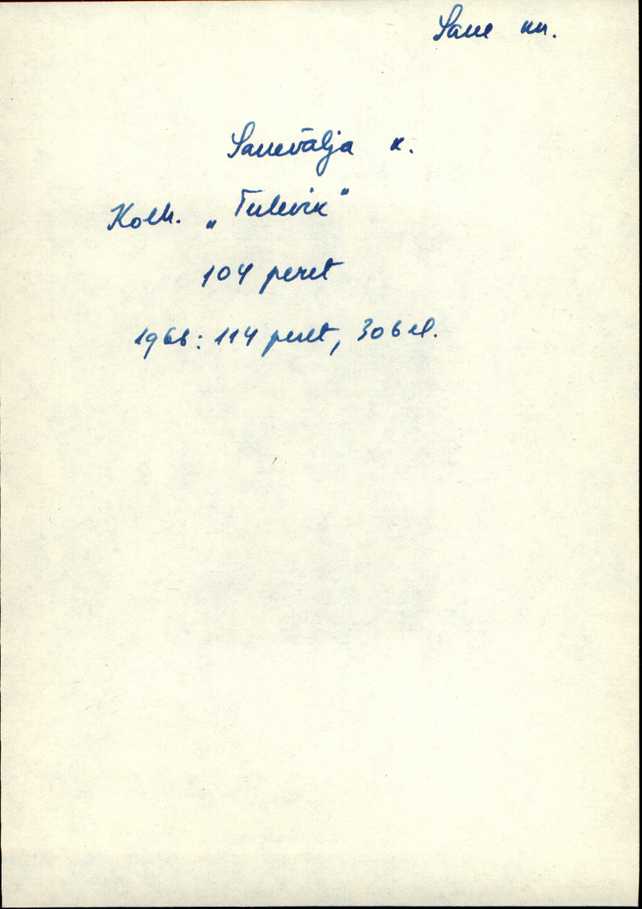 Saue kn.
Sauevälja k.
Kolh. „Tulevik"
104 peret
1966: 114 peret, 306 el.